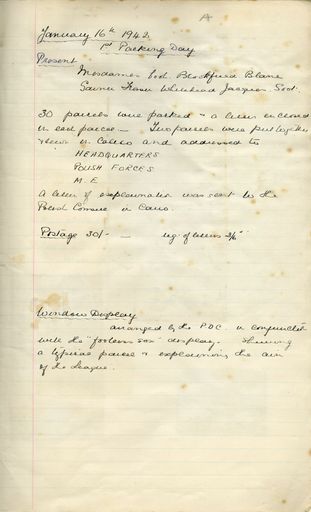 A
January 16th 1942
1st Packing Day
Present
Mesdames Scot. Blackfield Blane
Fraser Whitehead Jacques. Scot.
30 parcels were packed + a letter enclosed
in each parcel — parcels were put together
sewn in Calico and addressed to
HEADQUARTERS
POLISH FORCES
M.E.
A letter of explanation was sent to the
Polish Consul in Cairo.
Postage 30/- — reg. of letters 2/6
Window Display
arranged by the P.O.C. in conjunction
with the display. Showing
a typical parcel + explaining the aim
of the League.